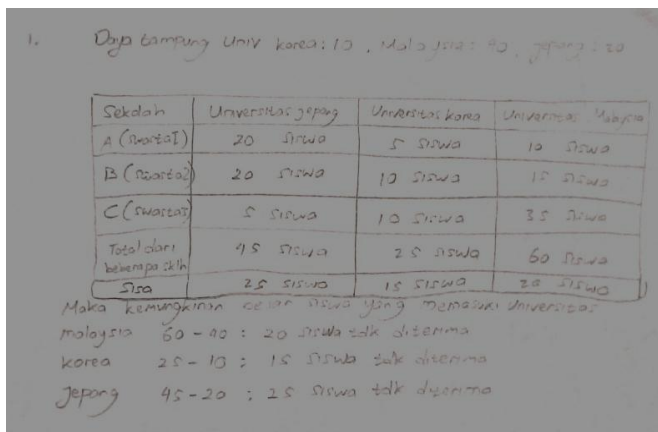 1. Daya tampung Univ korea : 10 , Malaysia : 40 , jepang : 20
Sekolah Universitas jepang Universitas korea Universitas Malaysia
A (swasta I) 20 siswa 5 siswa 10 siswa
B (swasta 2) 20 siswa 10 siswa 15 siswa
C (swasta 3) 5 siswa 10 siswa 35 siswa
Total dari beberapa sklh 45 siswa 25 siswa 60 siswa
Sisa 25 siswa 15 siswa 20 siswa
Maka kemungkinan besar siswa yang memasuki Universitas
malaysia 60 - 40 : 20 siswa tdk diterima
korea 25 - 10 : 15 siswa tdk diterima
Jepang 45 - 20 : 25 siswa tdk diterima